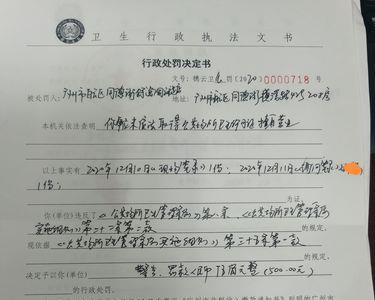 卫生行政执法文书
行政处罚决定书
文号：穗云卫 罚〔2020〕0000718号
被处罚人：广州市白云区同德街 地址：广州市白云区同德街
本机关依法查明 你馆未依法取得公共场所卫生许可证擅自营业
以上事实有 2020年12月10日《现场笔录》1份；2020年12月11日《询问笔录》
1份；
为证。
你(单位)违反了《公共场所卫生管理条例》第八条、《公共场所卫生管理条例
实施细则》第二十二条第二款 的规定，
现依据《公共场所卫生管理条例实施细则》第三十五条第一款
的规定，
决定予以你(单位) 警告、罚款人民币伍佰元整(500.00元)
的行政处罚。